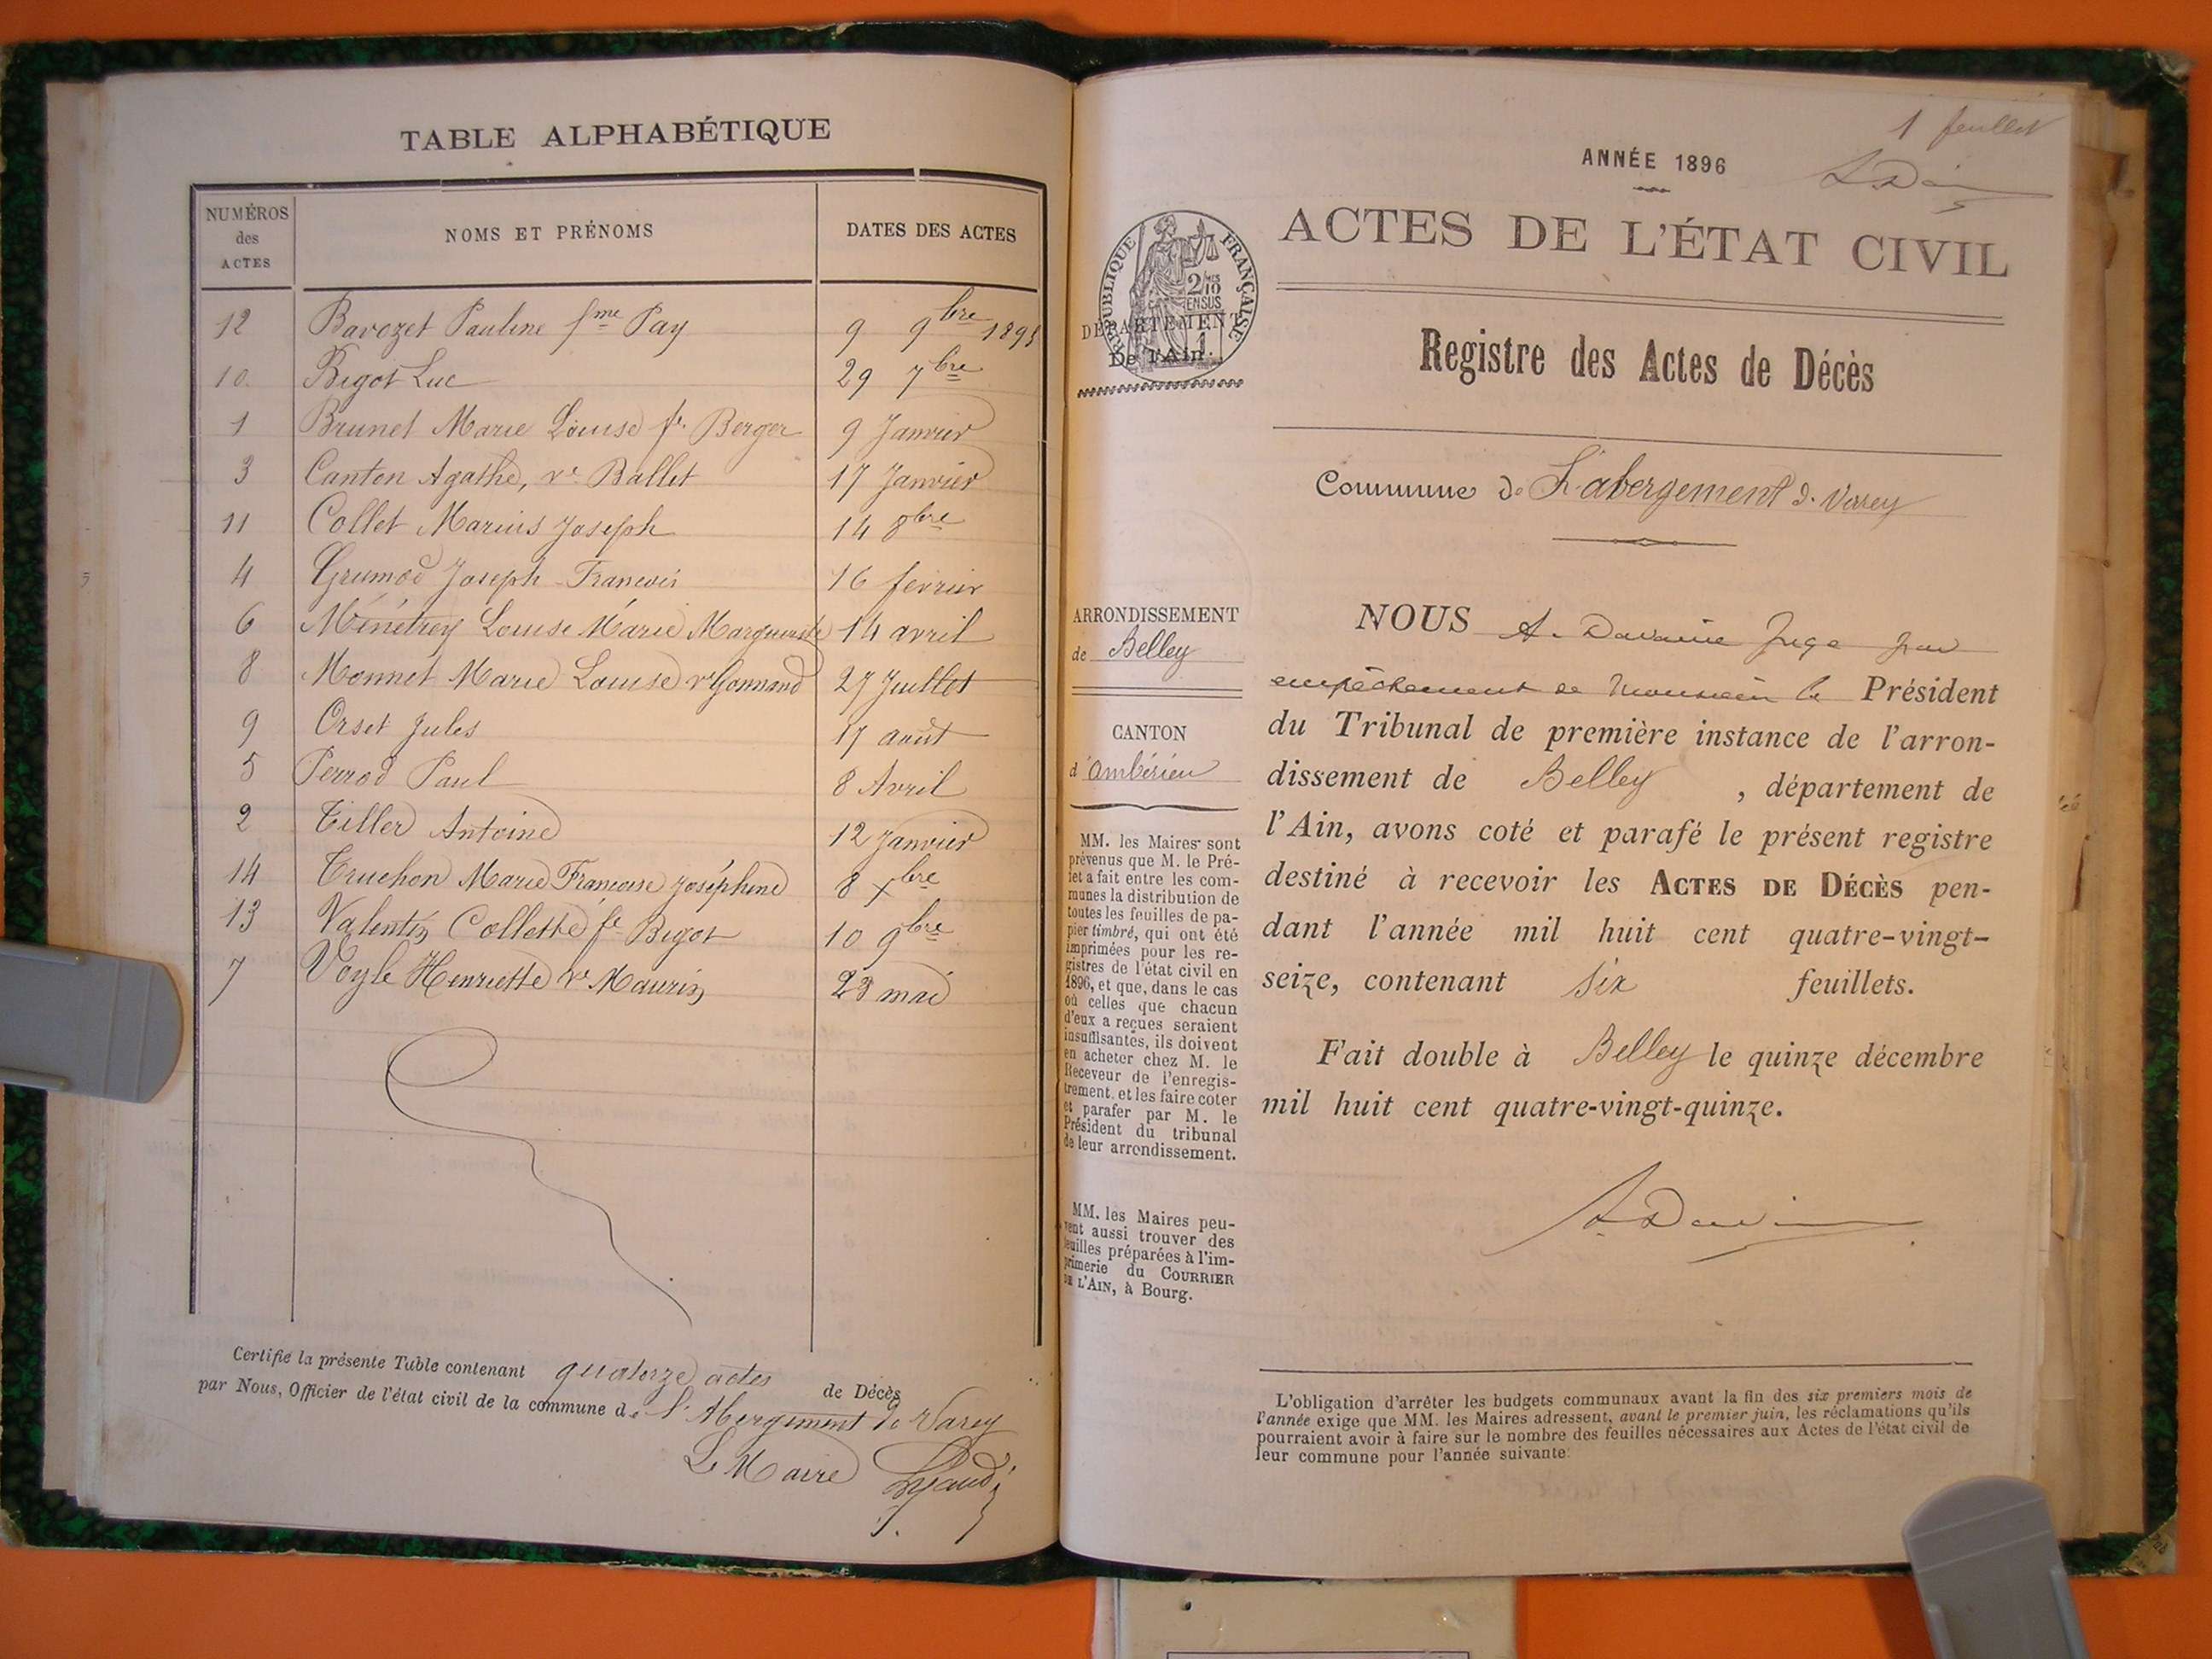 TABLE ALPHABÉTIQUE
NUMÉROS
des
ACTES
NOMS ET PRÉNOMS
DATES DES ACTES
12 Bavozet Pauline fme Pay 9 9bre 1895
10 Bigot Luc 29 7bre
1 Brunet Marie Louise fe Berger 9 Janvier
3 Canton Agathe, ve Ballet 17 Janvier
11 Collet Marius Joseph 14 8bre
4 Grumod Joseph Francois 16 fevrier
6 Ménétrey Louise Marie Marguerite 14 avril
8 Monnet Marie Louise ve Gonnand 27 Juillet
9 Orset Jules 17 août
5 Perrod Paul 8 Avril
2 Tiller Antoine 12 Janvier
14 Truchon Marie Francoise Joséphine 8 Xbre
13 Valentin Collette fe Bigot 10 9bre
7 Voyle Henriette ve Maurin 23 mai
Certifié la présente Table contenant quatorze actes de Décès
par Nous, Officier de l'état civil de la commune de l'Abergement de Varey
Le Maire
1 feuillet
ANNÉE 1896
ACTES DE L'ÉTAT CIVIL
RÉPUBLIQUE FRANÇAISE
2/10
EN SUS
DÉPARTEMENT
De l'Ain.
Registre des Actes de Décès
Commune de L'abergement d. Varey
ARRONDISSEMENT
de Belley
CANTON
d'ambérieu
MM. les Maires sont
prévenus que M. le Pré-
fet a fait entre les com-
munes la distribution de
toutes les feuilles de pa-
pier timbré, qui ont été
imprimées pour les re-
gistres de l'état civil en
1896, et que, dans le cas
où celles que chacun
d'eux a reçues seraient
insuffisantes, ils doivent
en acheter chez M. le
Receveur de l'enregis-
trement, et les faire coter
et parafer par M. le
Président du tribunal
de leur arrondissement.
MM. les Maires peu-
vent aussi trouver des
feuilles préparées à l'im-
primerie du COURRIER
DE L'AIN, à Bourg.
NOUS A. Davaine Juge par
empêchement de Monsieur le Président
du Tribunal de première instance de l'arron-
dissement de Belley, département de
l'Ain, avons coté et parafé le présent registre
destiné à recevoir les ACTES DE DÉCÈS pen-
dant l'année mil huit cent quatre-vingt-
seize, contenant six feuillets.
Fait double à Belley le quinze décembre
mil huit cent quatre-vingt-quinze.
L'obligation d'arrêter les budgets communaux avant la fin des six premiers mois de
l'année exige que MM. les Maires adressent, avant le premier juin, les réclamations qu'ils
pourraient avoir à faire sur le nombre des feuilles nécessaires aux Actes de l'état civil de
leur commune pour l'année suivante.